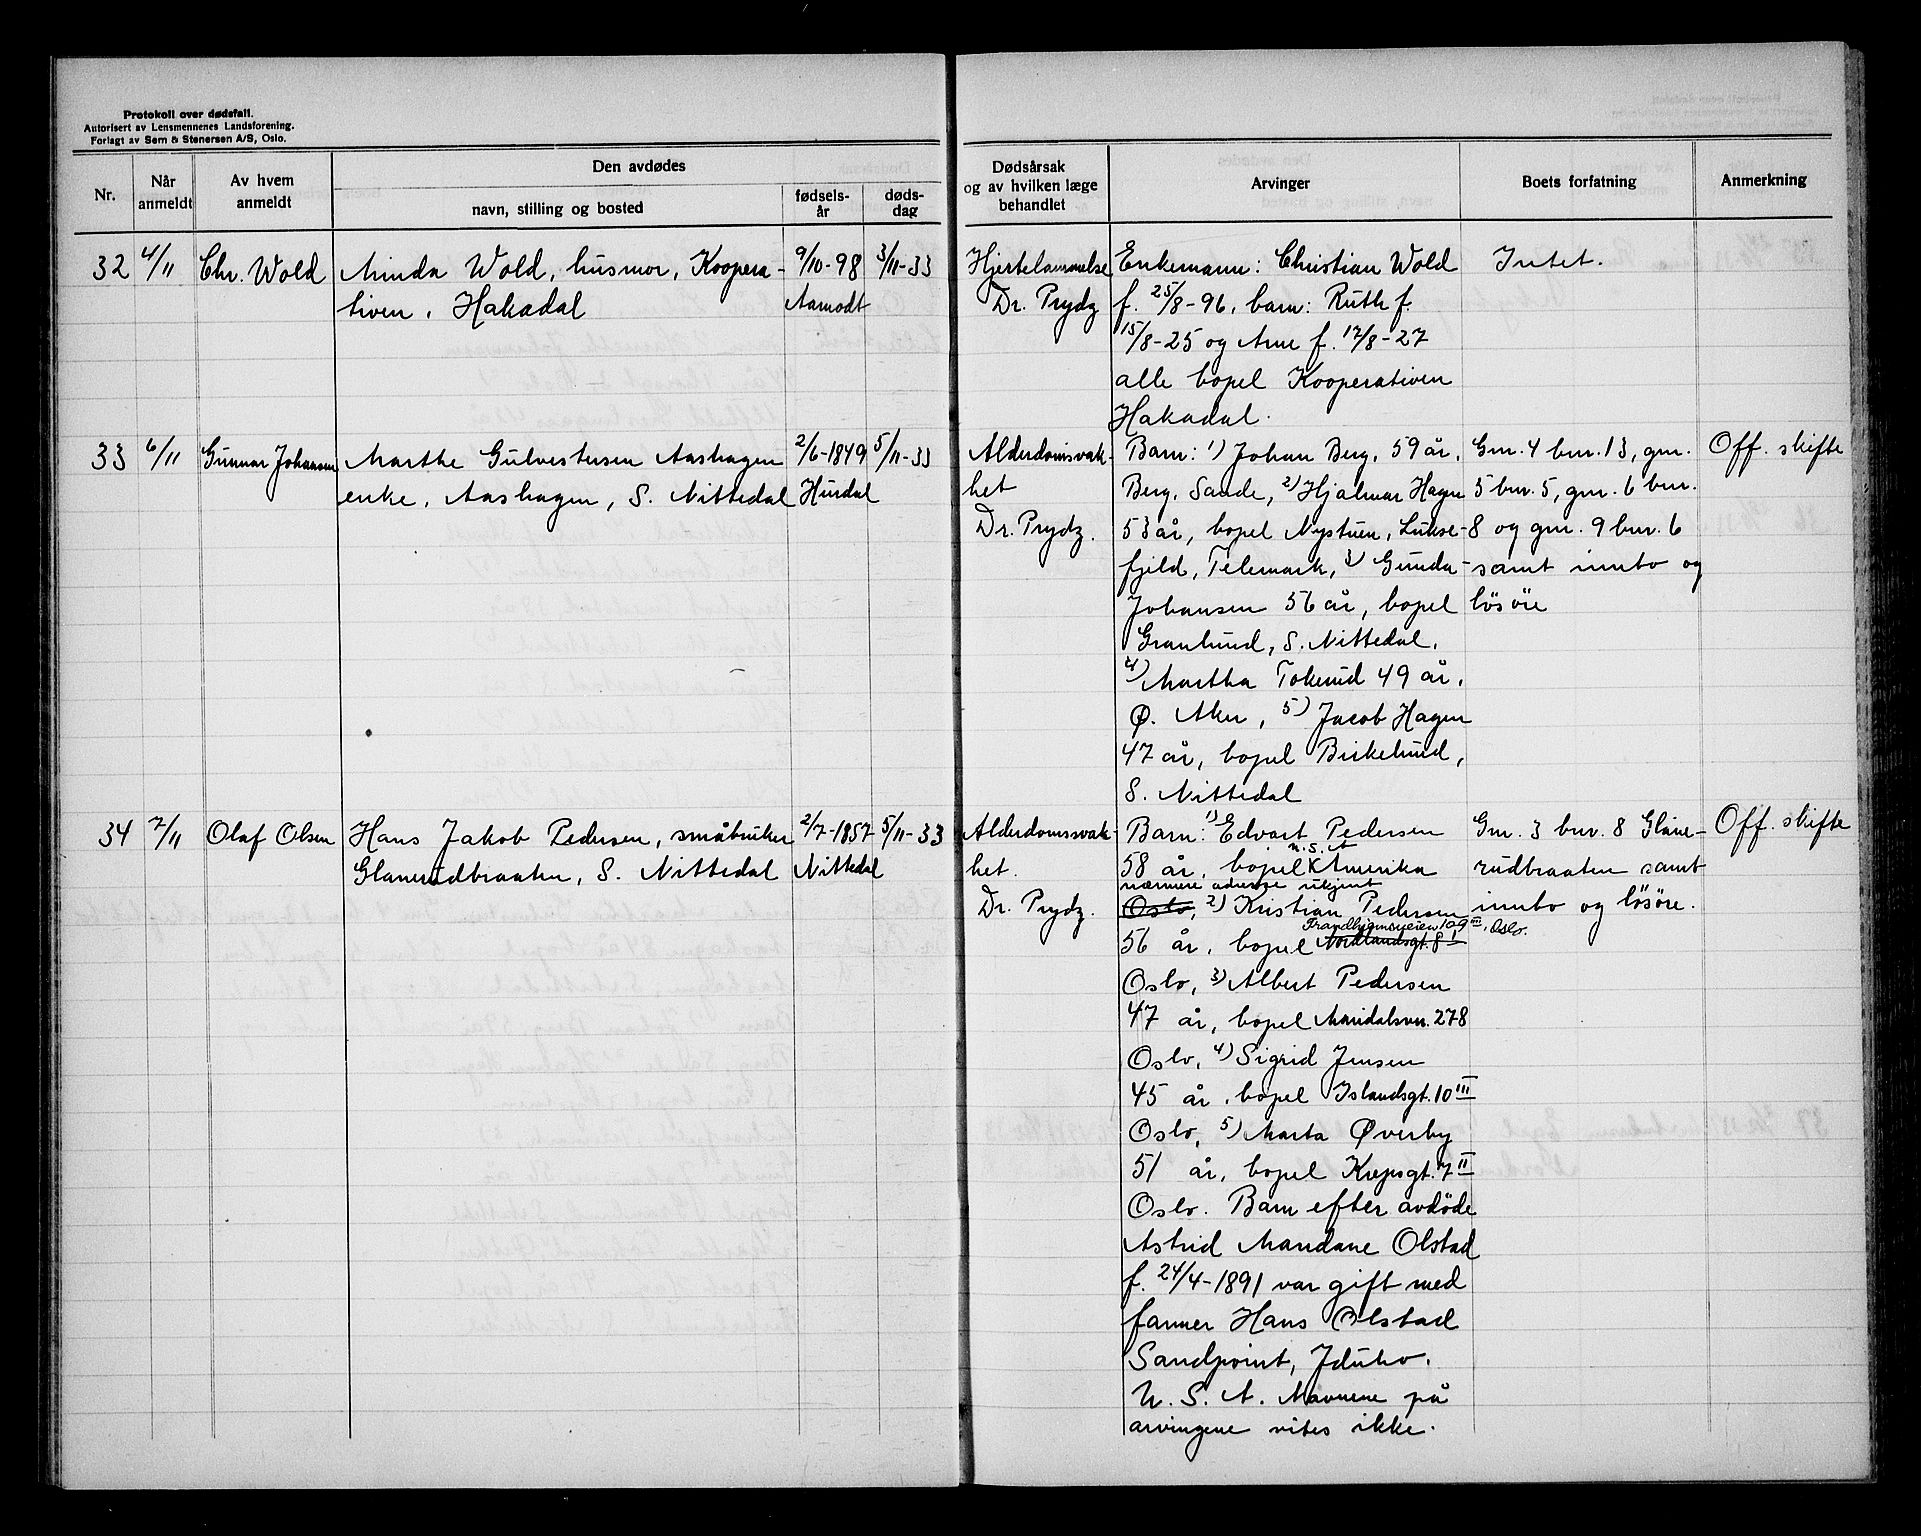 Protokoll over dødsfall.
Autorisert av Lensmennenes Landsforening.
Forlagt av Sem & Stenersen A/S, Oslo.
Nr.
Når anmeldt
Av hvem anmeldt
Den avdødes
navn, stilling og bosted
fødsels-år
døds-dag
Dødsårsak
og av hvilken læge
behandlet
Arvinger
Boets forfatning
Anmerkning
32 4/11 Chr. Wold Minda Wold, husmor, Koopera- 9/10-98 3/11-33
tiven, Hakadal Aamodt
Hjertelammelse
Dr. Prydz
Enkemann: Christian Wold
f. 25/8-96, barn: Ruth f.
15/8-25 og Arne f. 17/8-27
alle bopel Kooperativen
Hakadal.
Intet.
33 6/11 Gunnar Johansen Marthe Gulvestersen Aashagen 2/6-1849 5/11-33
enke, Aashagen, S. Nittedal Hurdal
Alderdomsvak-
het
Dr. Prydz.
Barn: 1) Johan Berg, 59 år,
Berg, Sande, 2) Hjalmar Hagen
53 år, bopel Nystuen, Lukse-
fjeld, Telemark, 3) Gunda
Johansen 56 år, bopel
Granlund, S. Nittedal.
4) Martha Tokerud 49 år,
Ø. Aker, 5) Jacob Hagen
47 år, bopel Birkelund,
S. Nittedal
Gnr. 4 bnr. 13, gnr.
5 bnr. 5, gnr. 6 bnr.
8 og gnr. 9 bnr. 6
samt innbo og
løsøre
Off. skifte
34 7/11 Olaf Olsen Hans Jakob Pedersen, småbruker 2/7-1857 5/11-33
Glanerudbraaten, S. Nittedal Nittedal
Alderdomssvak-
het.
Dr. Prydz.
Barn: 1) Edvart Pedersen
U.S.A
58 år, bopel Amerika
nærmere adresse ukjent
Oslo, 2) Kristian Pedersen
Trondhjemsveien 109 III, Oslo.
56 år, bopel Nordlandsgt. 8 I
Oslo, 3) Albert Pedersen
47 år, bopel Maridalsvn. 278
Oslo, 4) Sigrid Jensen
45 år, bopel Islandsgt. 10 III
Oslo, 5) Marta Øverby
51 år, bopel Krepsgt. 7 II
Oslo. Barn efter avdøde
Astrid Mandane Olstad
f. 24/4-1891 var gift med
farmer Hans Olstad
Sandpoint, Iduho.
U. S. A. Navnene på
arvingene vites ikke.
Gnr. 3 bnr. 8 Glane-
rudbraaten samt
innbo og løsøre.
Off. skifte